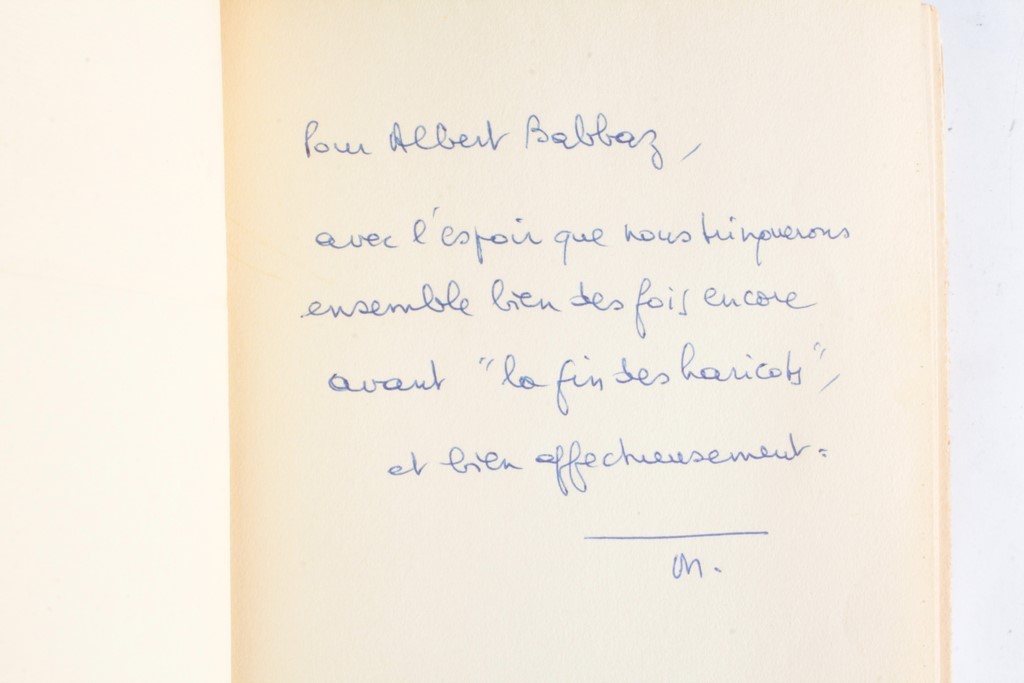 Pour Albert Babbaz,
avec l'espoir que nous trinquerons
ensemble bien des fois encore
avant "la fin des haricots",
et bien affectueusement.
M.